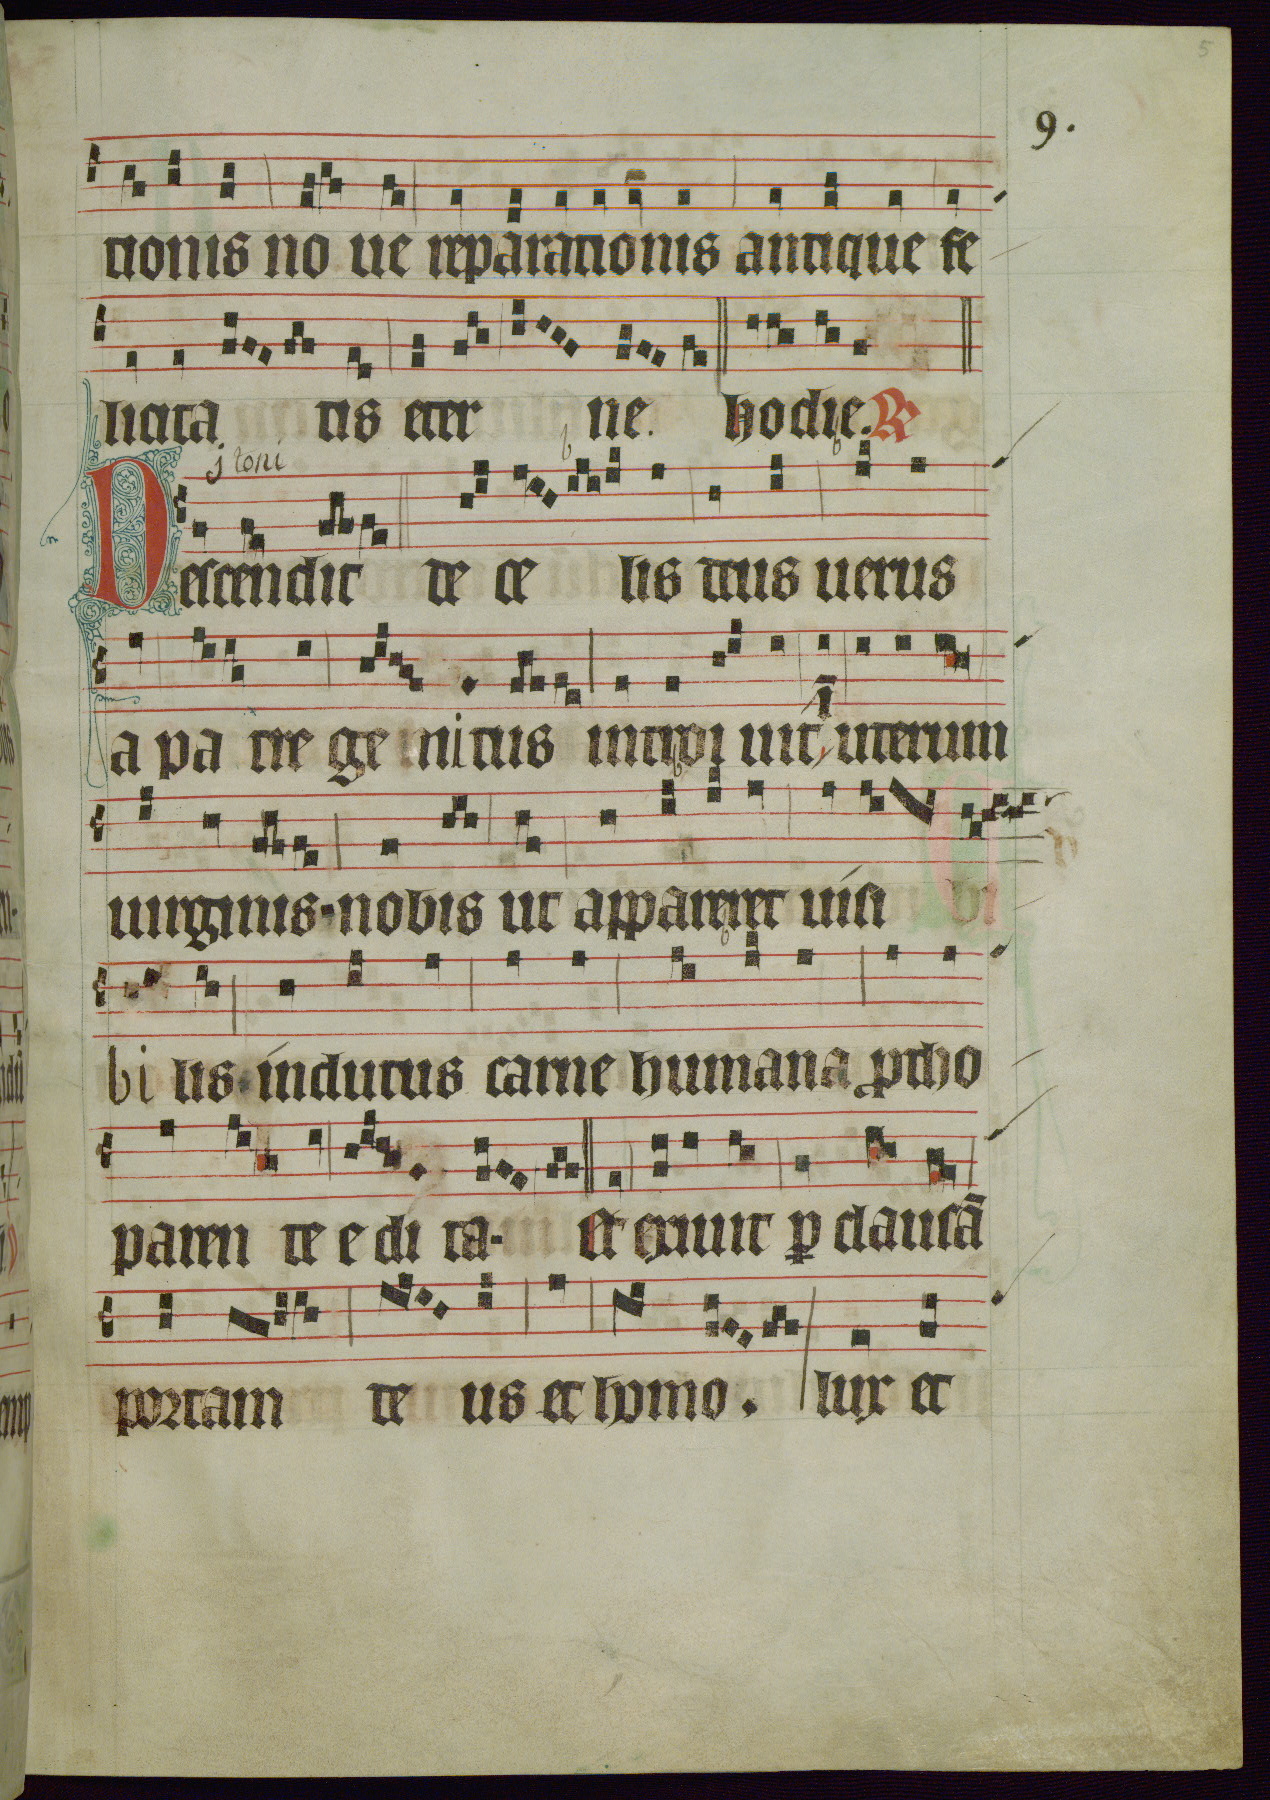 5
9.
tionis no ue reparationis antique fe
licita tis eter ne. hodie. R
j toni
Descendit de ce lis deus uerus
a patre genitus introi uit, in uterum
uirginis. nobis ut appareret uisi bi
bi lis. indutus carne humana ꝓtho
paren te e di ta. Et exiuit ꝑ clausā
portam de us et homo. lux et